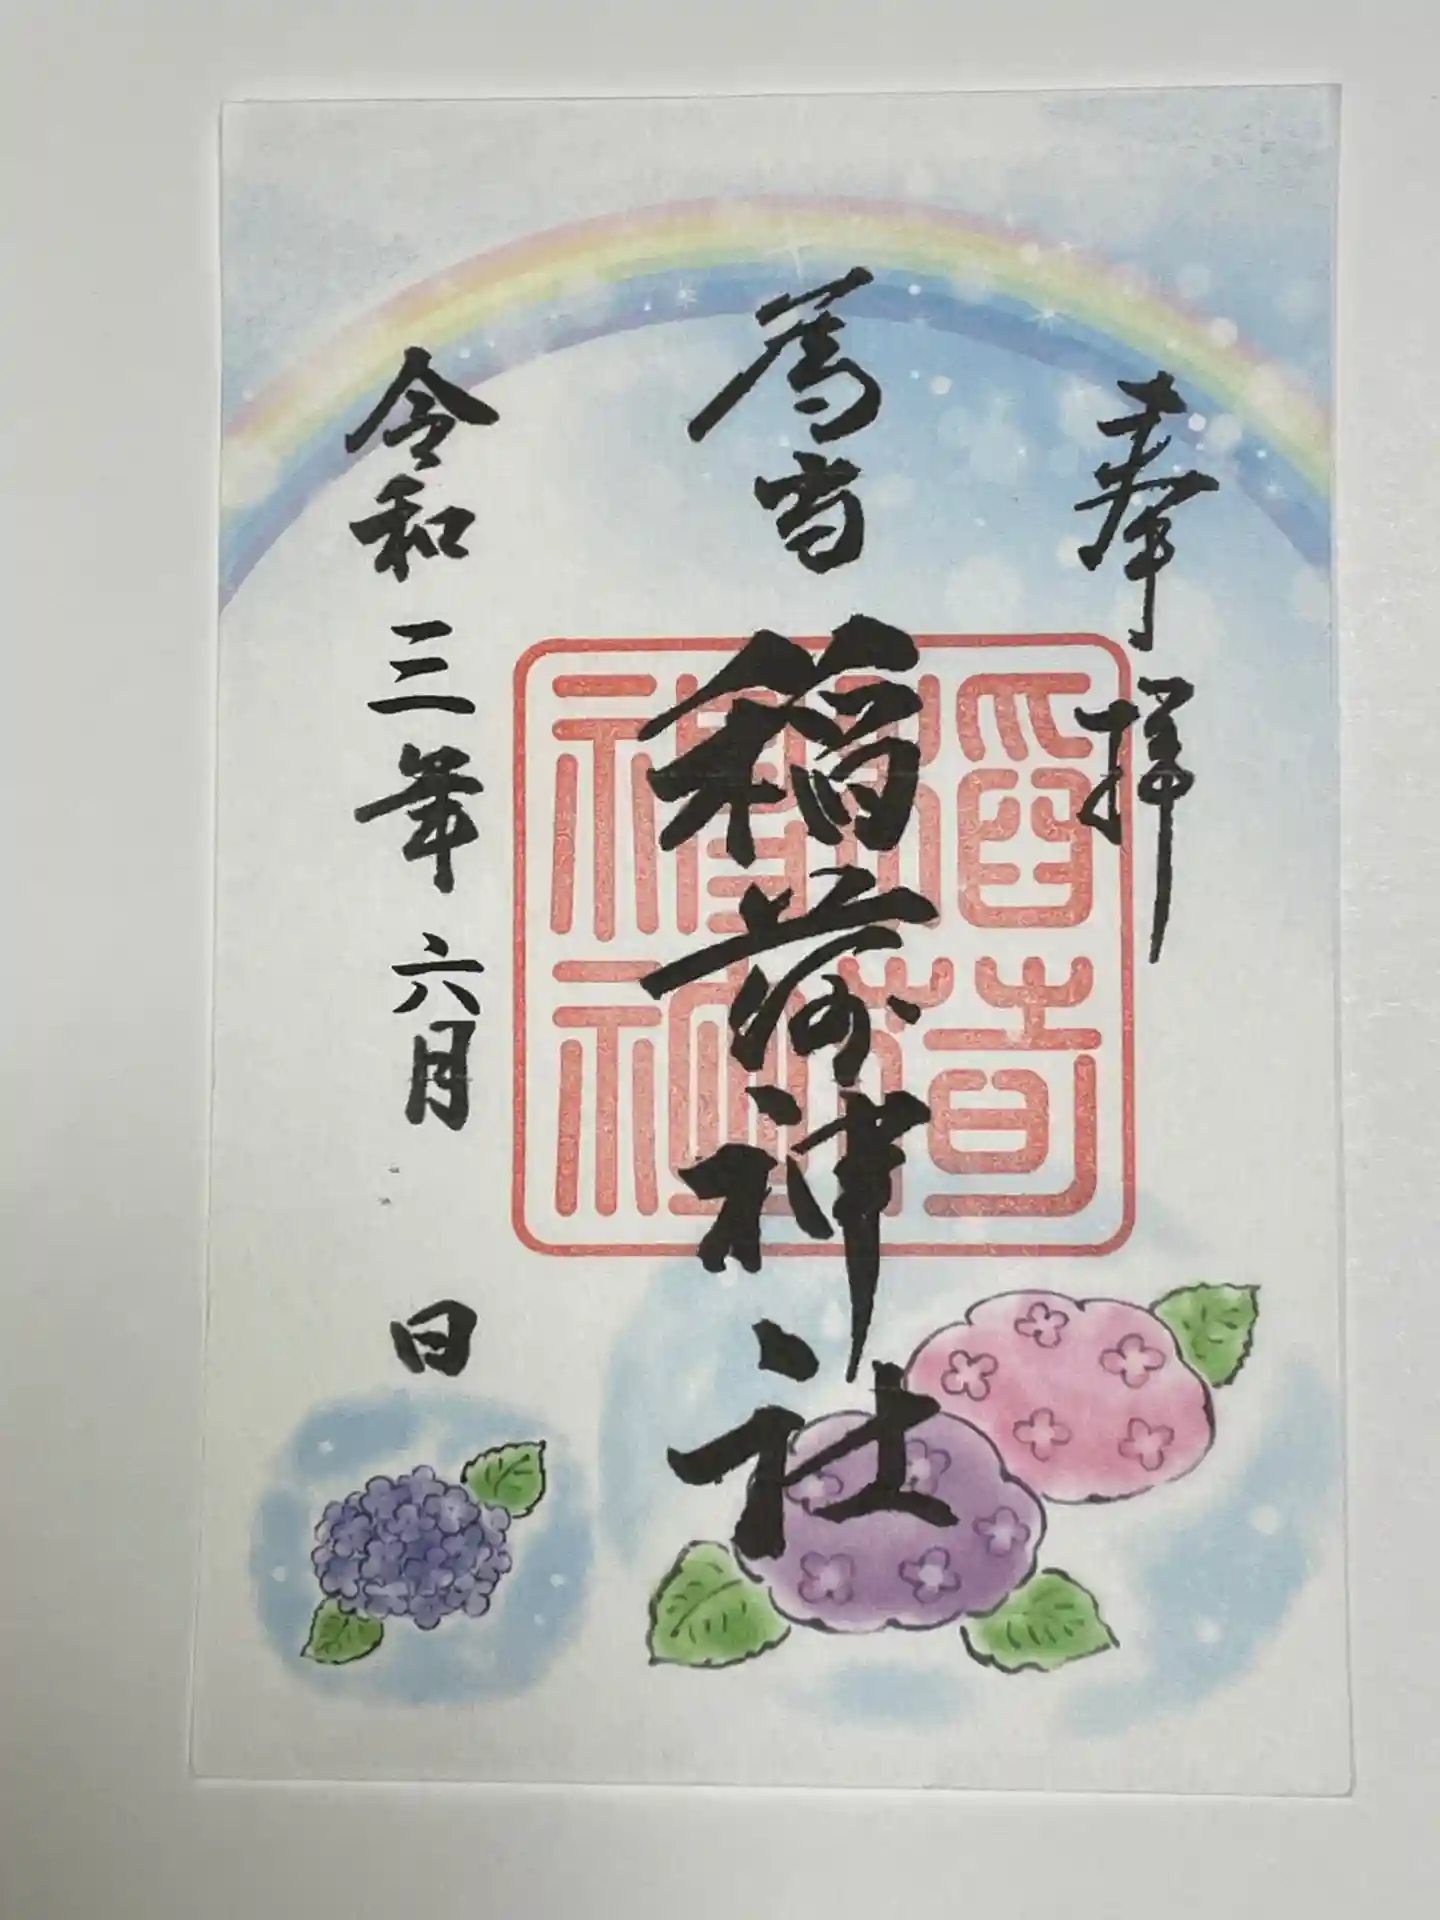 奉拝
為当稲荷神社
稲荷
神社
令和三年六月 日